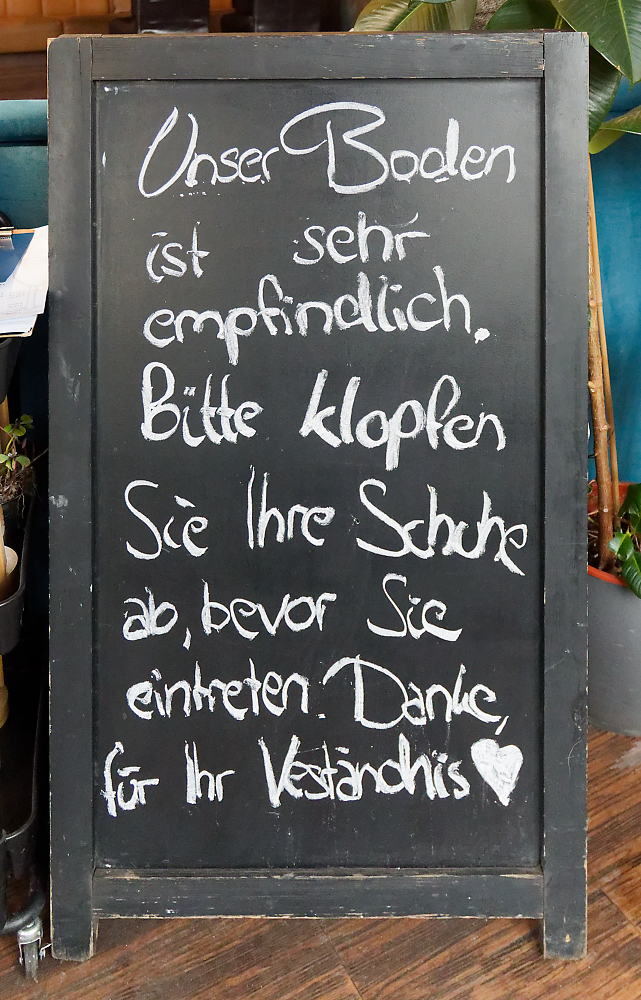 Unser Boden
ist sehr
empfindlich.
Bitte klopfen
Sie Ihre Schuhe
ab, bevor Sie
eintreten. Danke,
für Ihr Veständnis